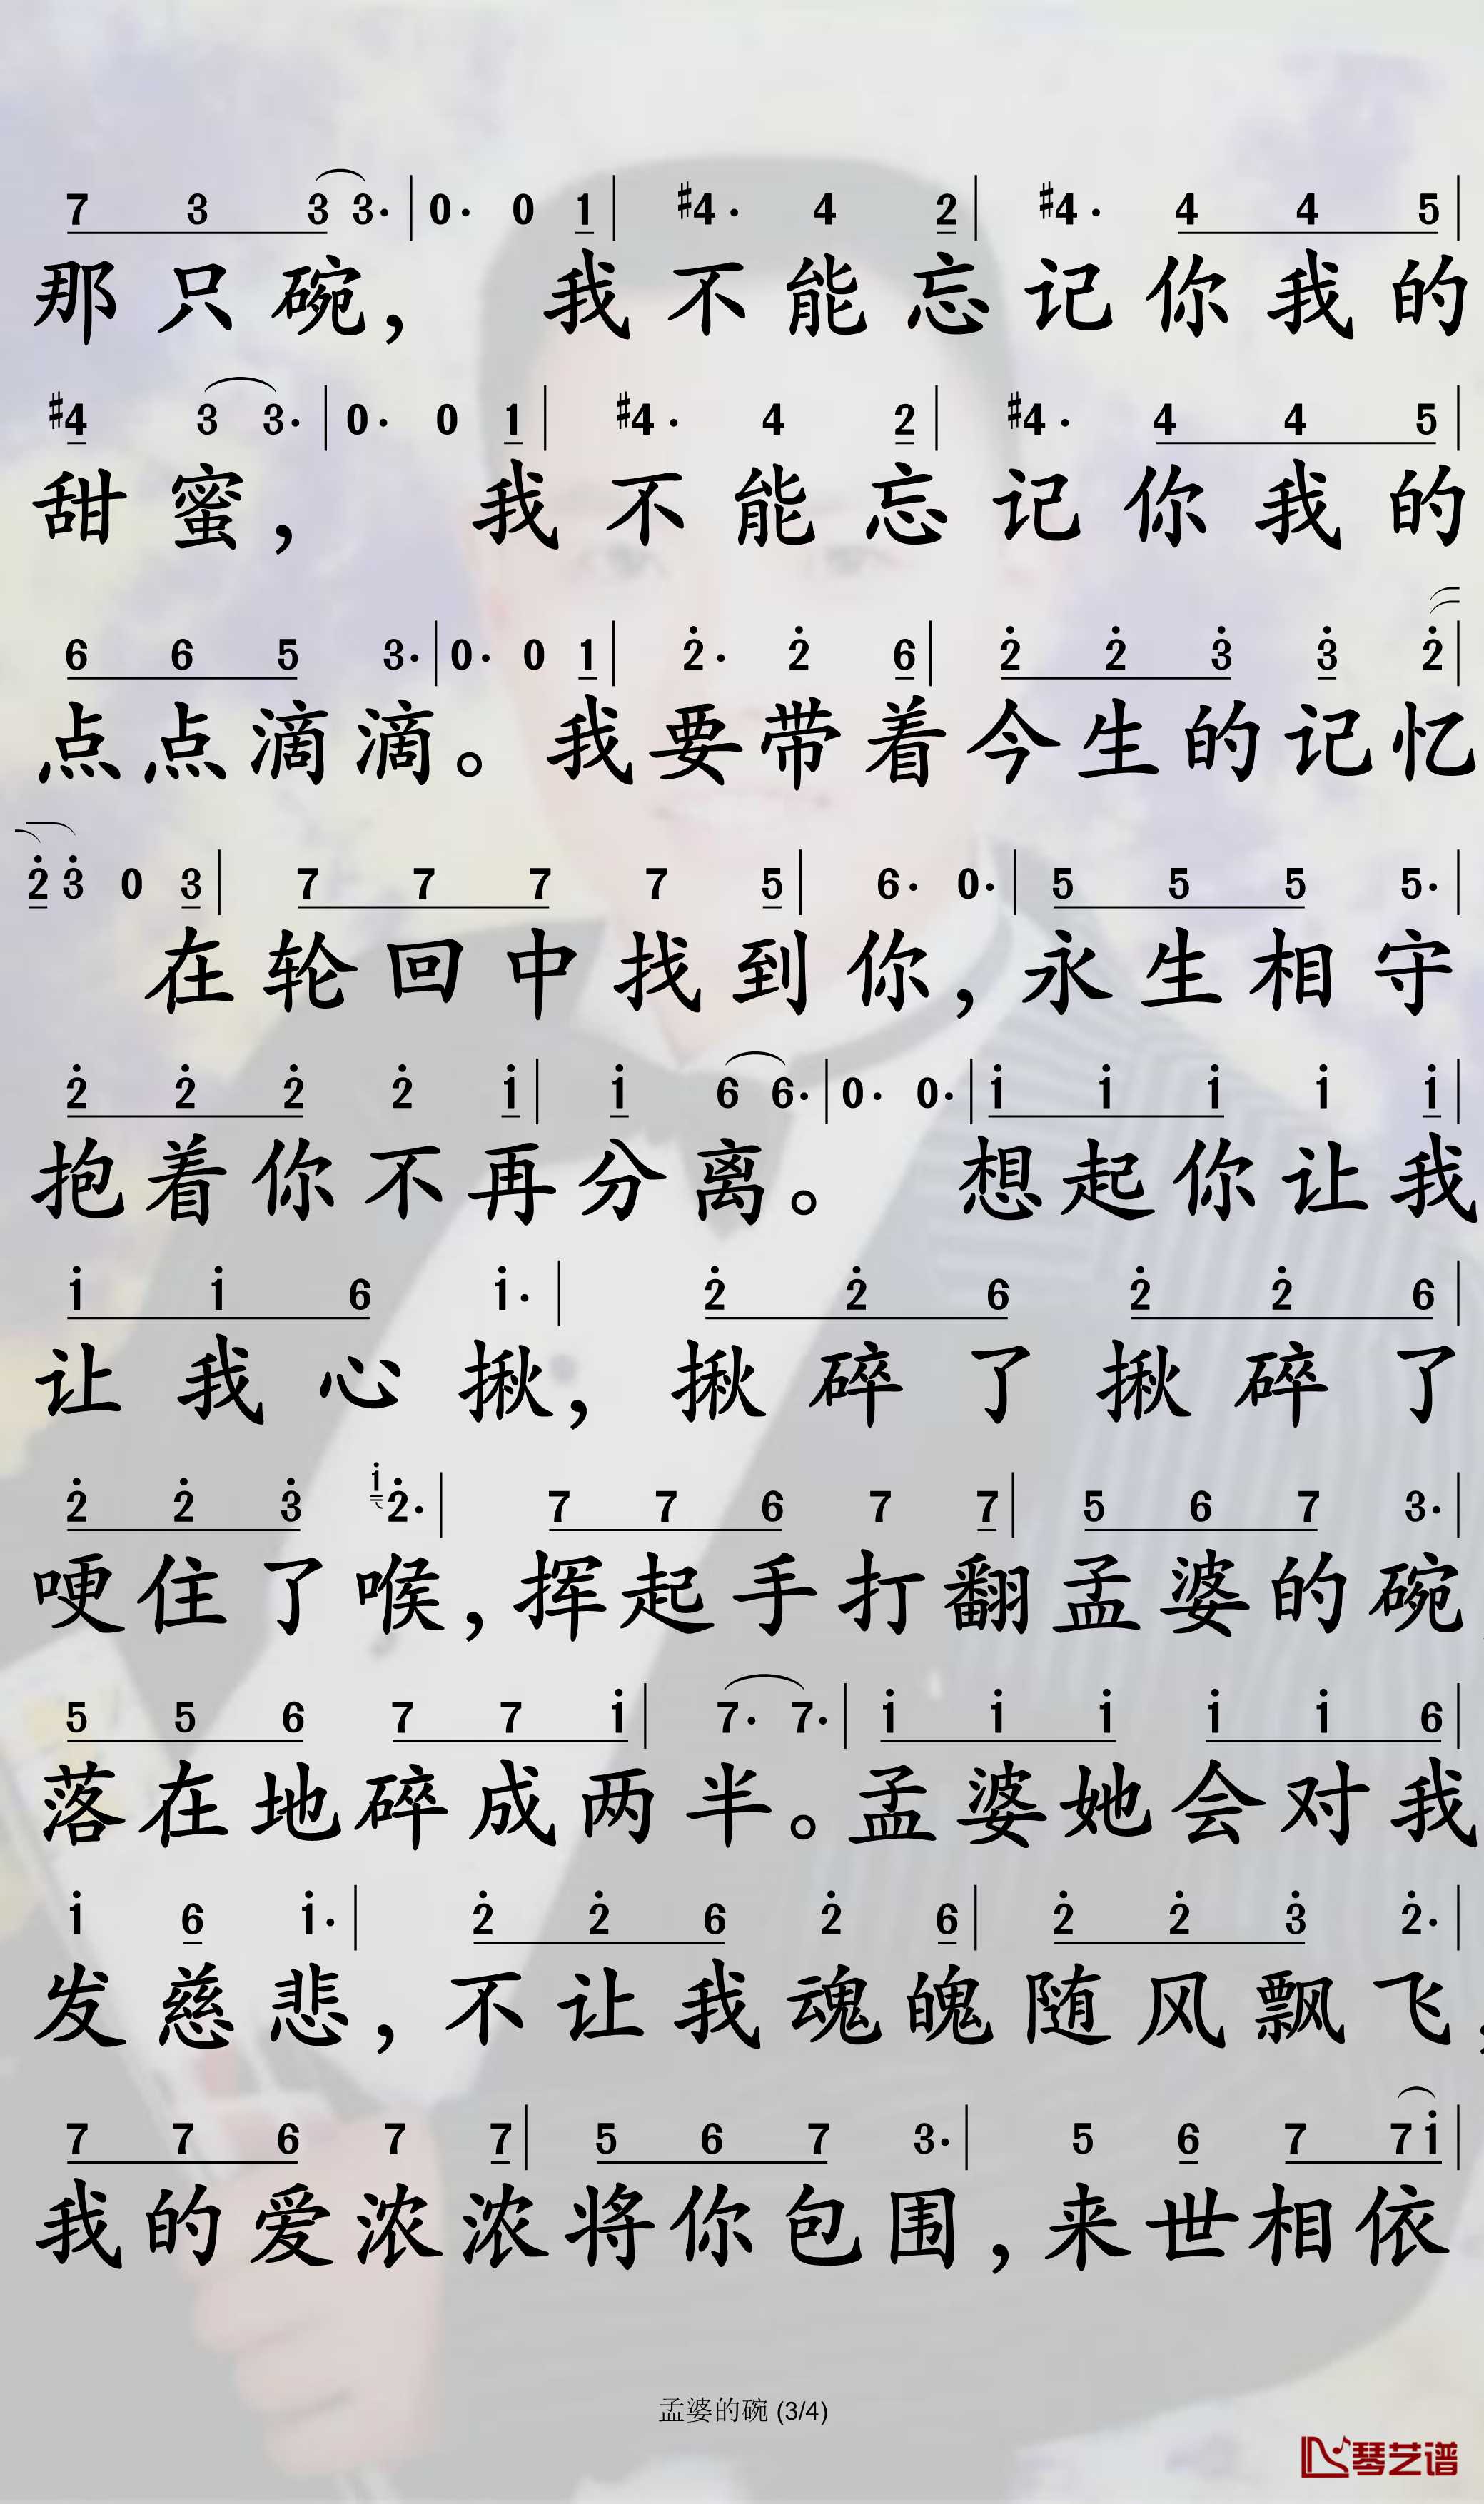 7 3 3 3· | 0· 0 1 | #4· 4 2 | #4· 4 4 5 |
那只碗， 我不能忘记你我的
#4 3 3· | 0· 0 1 | #4· 4 2 | #4· 4 4 5 |
甜蜜， 我不能忘记你我的
6 6 5 3· | 0· 0 1 | 2̇· 2̇ 6 | 2̇ 2̇ 3̇ 3̇ 2̇ |
点点滴滴。我要带着今生的记忆
2̇ 3̇ 0 3 | 7 7 7 7 5 | 6· 0· | 5 5 5 5· |
在轮回中找到你，永生相守
2̇ 2̇ 2̇ 2̇ 1̇ | 1̇ 6 6· | 0· 0· | 1̇ 1̇ 1̇ 1̇ 1̇ |
抱着你不再分离。 想起你让我
1̇ 1̇ 6 1̇· | 2̇ 2̇ 6 2̇ 2̇ 6 |
让我心揪，揪碎了揪碎了
2̇ 2̇ 3̇ 1̇ 2̇· | 7 7 6 7 7 | 5 6 7 3· |
哽住了喉，挥起手打翻孟婆的碗
5 5 6 7 7 1̇ | 7· 7· | 1̇ 1̇ 1̇ 1̇ 1̇ 6 |
落在地碎成两半。孟婆她会对我
1̇ 6 1̇· | 2̇ 2̇ 6 2̇ 6 | 2̇ 2̇ 3̇ 2̇· |
发慈悲，不让我魂魄随风飘飞，
7 7 6 7 7 | 5 6 7 3· | 5 6 7 7 1̇ |
我的爱浓浓将你包围，来世相依
孟婆的碗 (3/4)
琴艺谱